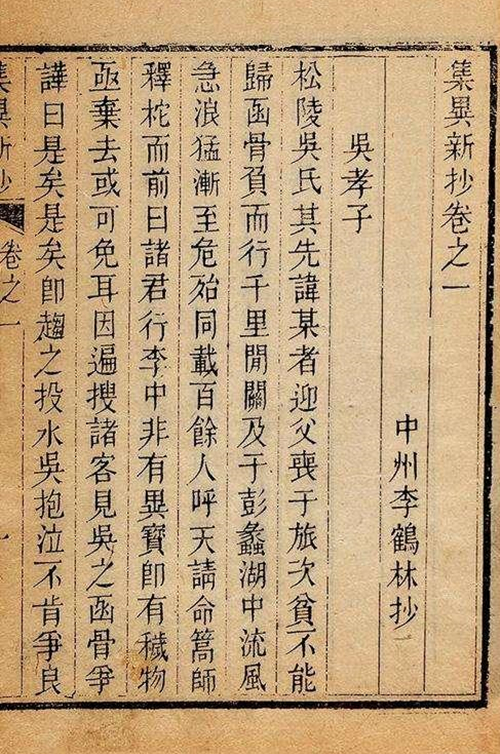 集異新抄卷之一
中州李鶴林抄
吳孝子
松陵吳氏其先諱某者迎父喪于旅次貧不能
歸函骨負而行千里間關及于彭蠡湖中流風
急浪猛漸至危殆同載百餘人呼天請命篙師
釋柁而前曰諸君行李中非有異寶卽有穢物
亟棄去或可免耳因遍搜諸客見吳之函骨爭
譁曰是矣是矣卽趨之投水吳抱泣不肯爭良
集異新抄
卷之一